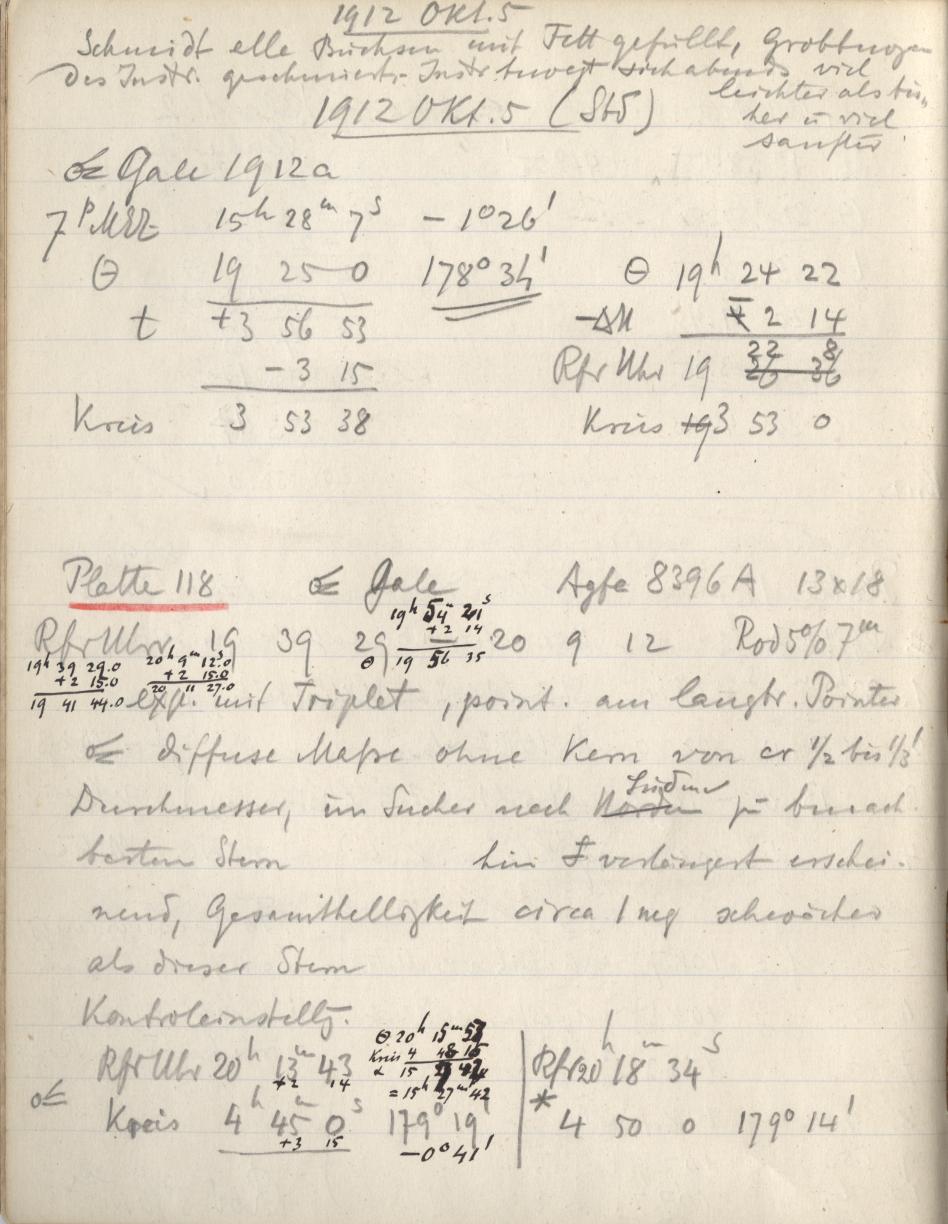 1912 Okt. 5
Schmidt alle Büchsen mit Fett gefüllt, Grobbewegn
des Instr. geschmiert. Instr bewegt sich abends viel
leichter als bis-
her u viel
sanfter
1912 Okt. 5 (Std)
☄ Gale 1912a
7ᵖ MEZ 15ʰ 28ᵐ 7ˢ − 1° 26'
Θ 19 25 0 178° 34' Θ 19ʰ 24 22
t +3 56 53 −ΔU − 2 14
− 3 15 Rfr Uhr 19 22 8
Kreis 3 53 38 Kreis 3 53 0
Platte 118 ☄ Gale Agfa 8396 A 13x18
19ʰ 54ᵐ 21ˢ
+2 14
Θ 19 56 35
Rfr Uhr 19 39 29 — 20 9 12 Rod 5% 7ᵐ
19ʰ 39 29.0 20ʰ 9ᵐ 12ˢ.0
+2 15.0 +2 15.0
19 41 44.0 20 11 27.0
exp. mit Triplet, point. am langbr. Pointer
☄ diffuse Maße ohne Kern von cr ½ bis ⅓'
Durchmesser, im Sucher nach Süden zu benach-
barten Stern hin verlängert erschei-
nend, Gesamthelligkeit circa 1 mg schwächer
als dieser Stern
Kontroleinstellg.
Θ 20ʰ 15ᵐ 57
Kreis 4 48 15
α 15 27 42
= 15ʰ 27ᵐ 42
Rfr Uhr 20ʰ 13ᵐ 43 Rfr 20ʰ 18ᵐ 34ˢ
+2 14
☄ Kreis 4ʰ 45ᵐ 0ˢ 179° 19' * 4 50 0 179° 14'
+3 15 −0° 41'